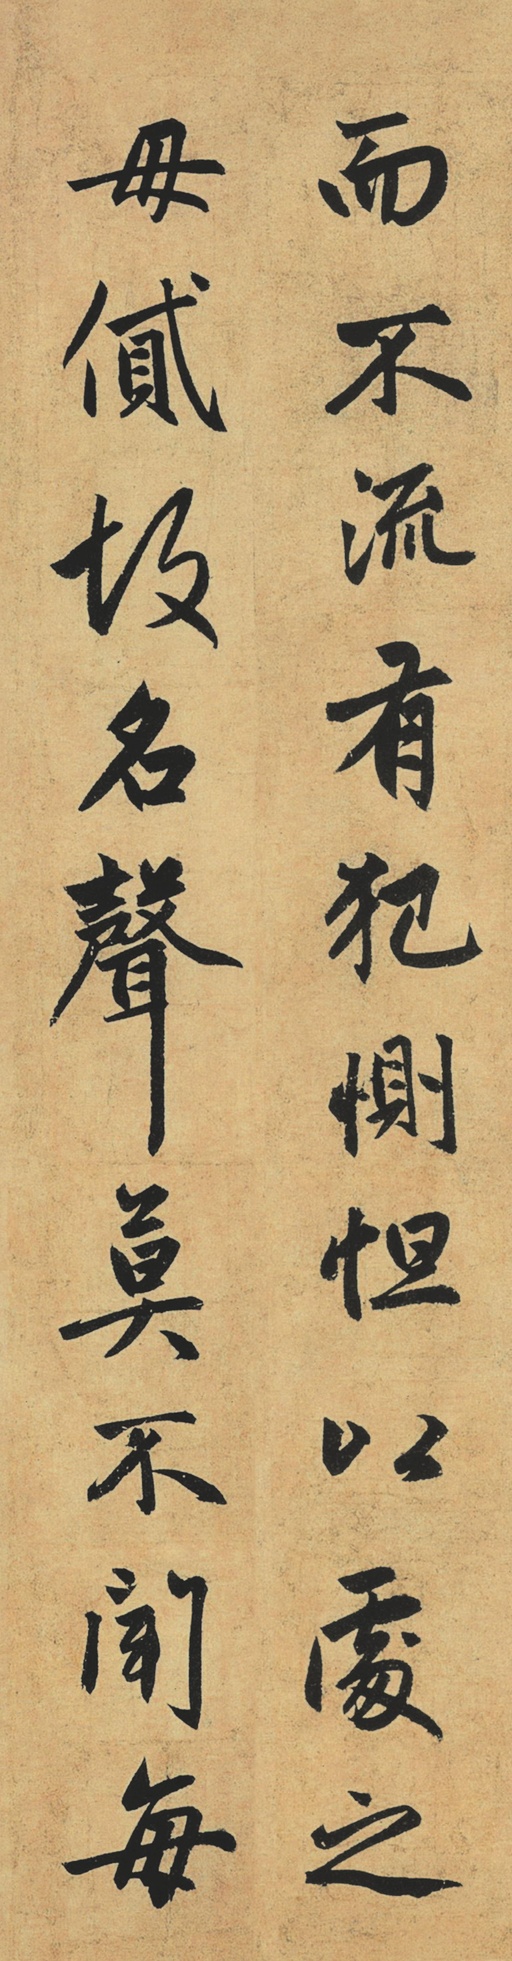 而不流有犯惻怛以處之
毋貸故名聲莫不聞每